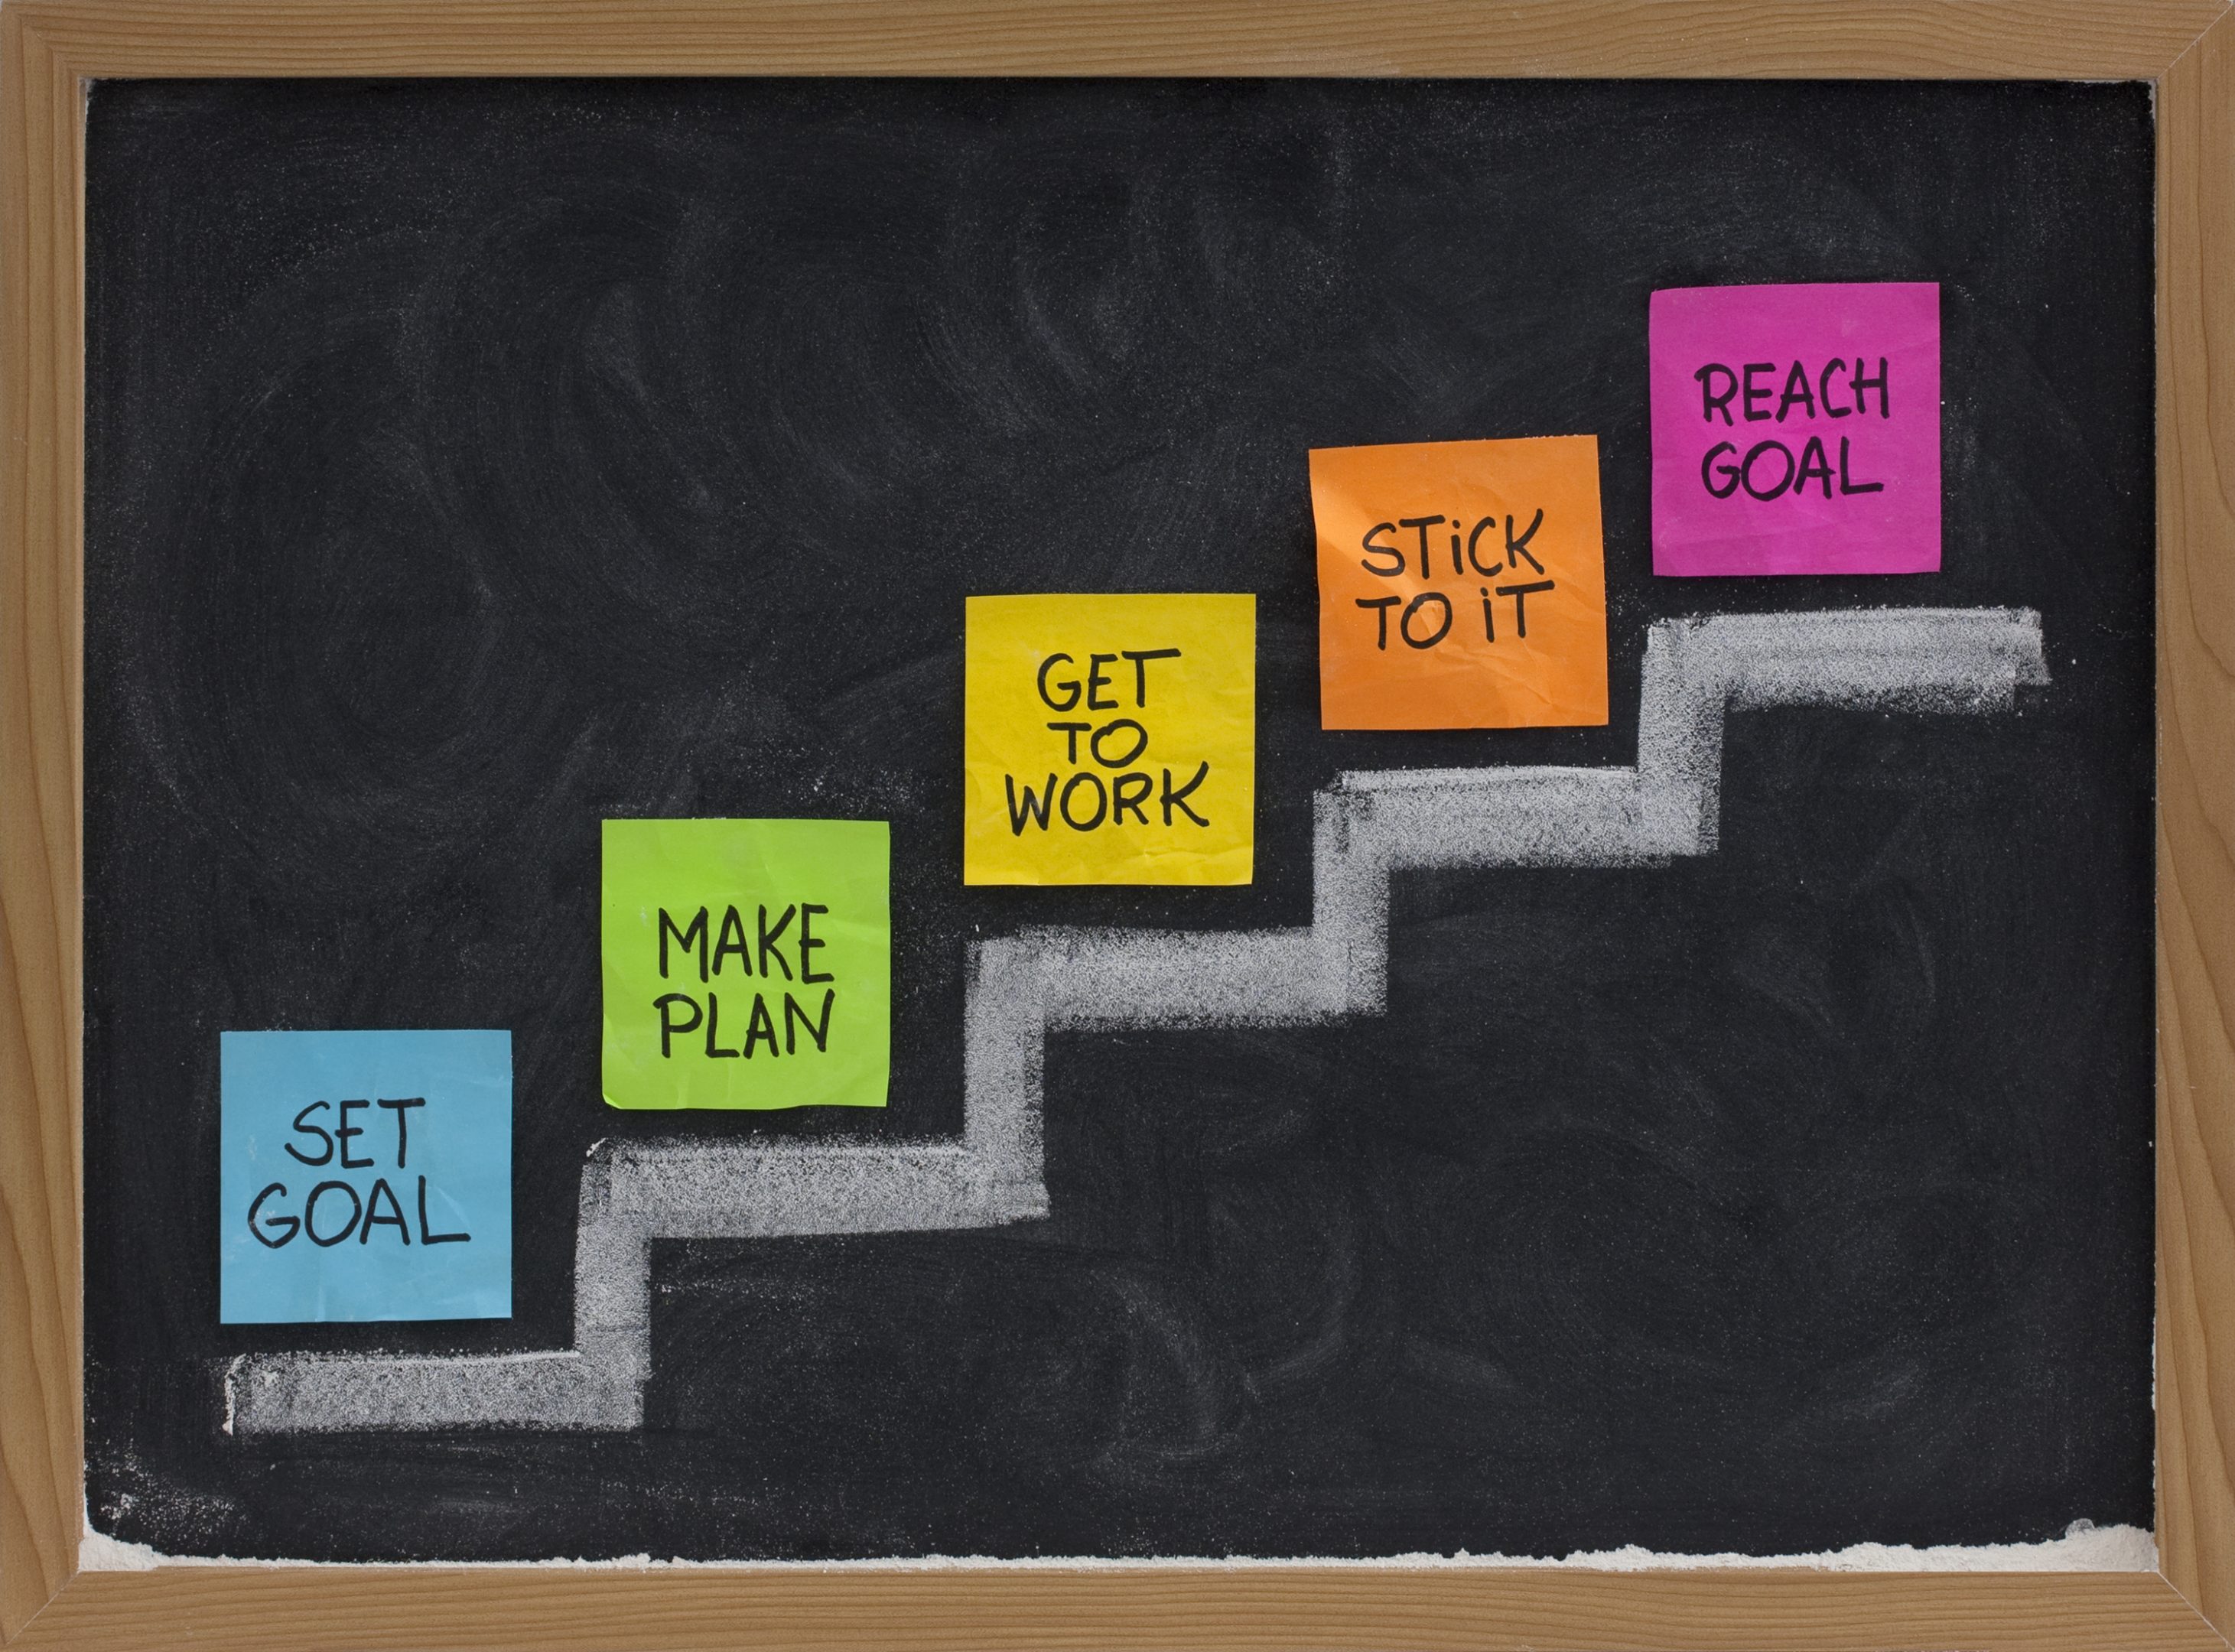 SET
GOAL
MAKE
PLAN
GET
TO
WORK
STiCK
TO iT
REACH
GOAL